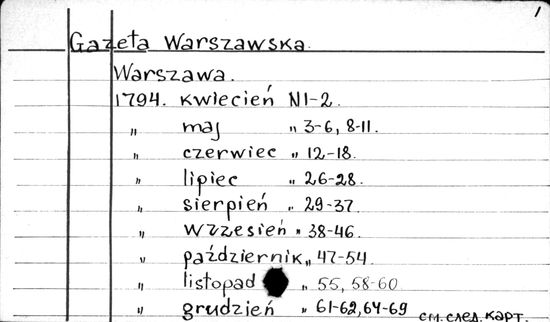 1
Gazeta Warszawska.
Warszawa.
1794. kwiecień N1-2.
„ maj „ 3-6, 8-11.
„ czerwiec „ 12-18.
„ lipiec „ 26-28.
„ sierpień „ 29-37.
„ wrzesień „ 38-46.
„ październik „ 47-54.
„ listopad „ 55, 58-60
„ grudzień „ 61-62, 64-69
см. след. карт.